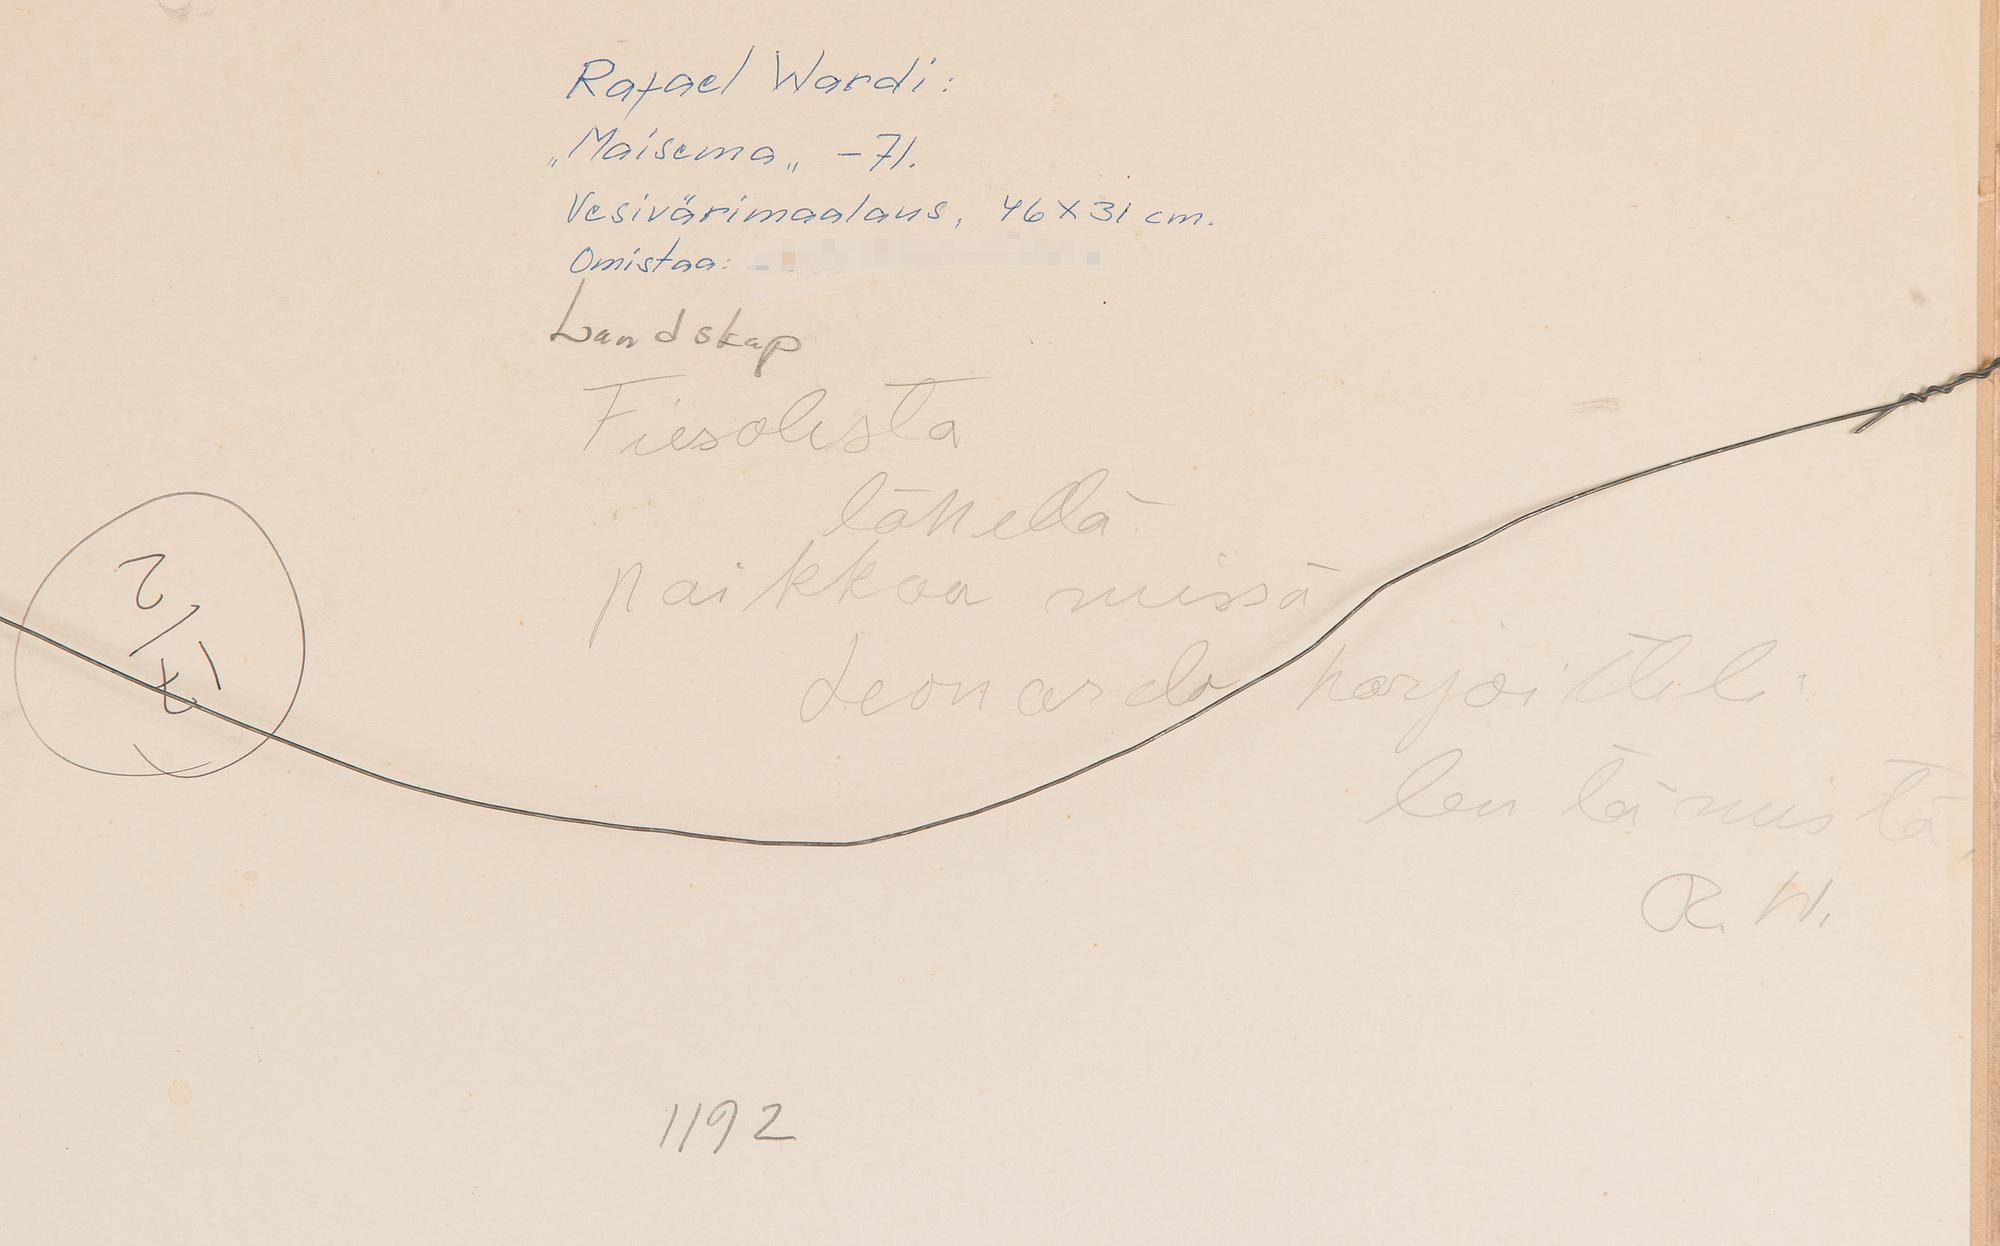 Rafael Wardi:
„Maisema„ -71.
Vesivärimaalaus, 46x31 cm.
Omistaa:
Landskap
Fiesolesta
lähellä
paikkaa missä
Leonardo harjoitteli
lentämistä,
R. W.
1192